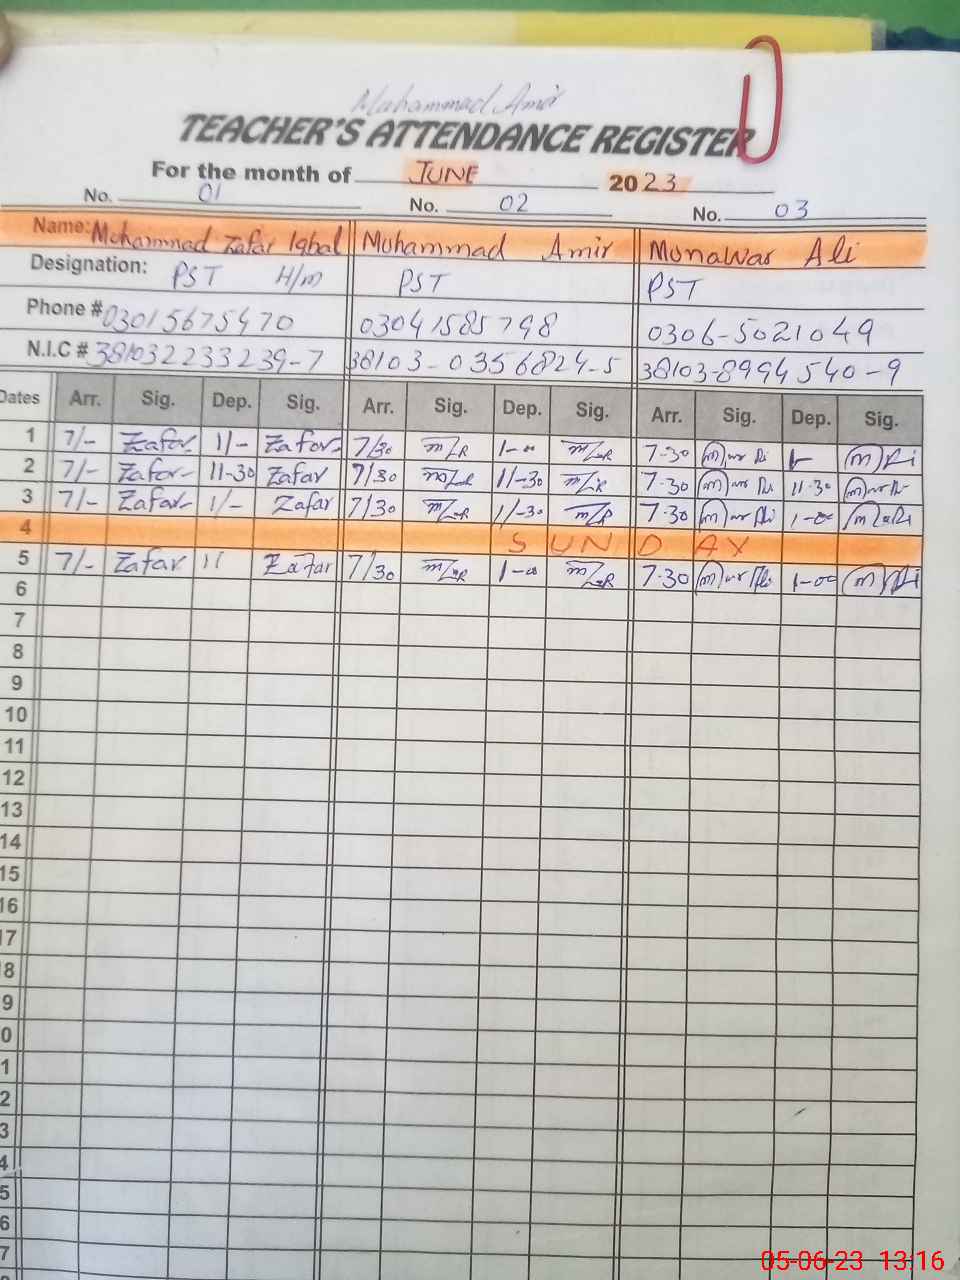 Muhammad Amir
TEACHER'S ATTENDANCE REGISTER
For the month of JUNE 2023
No. 01 No. 02 No. 03
Name: Mohammad Zafar Iqbal Muhammad Amir Munawar Ali
Designation: PST H/m PST PST
Phone # 03015675470 03041585798 0306-5021049
N.I.C # 381032233239-7 38103-0356824-5 38103-8994540-9
Dates Arr. Sig. Dep. Sig. Arr. Sig. Dep. Sig. Arr. Sig. Dep. Sig.
1 7/- Zafar 1/- Zafar 7/30 1-00 7-30
2 7/- Zafar 11-30 Zafar 7/30 11-30 7-30 11-30
3 7/- Zafar 1/- Zafar 7/30 11-30 7-30 1-00
4 SUNDAY
5 7/- Zafar 11 Zafar 7/30 1-00 7-30 1-00
6
7
8
9
10
11
12
13
14
15
16
17
8
9
0
1
2
3
4
5
6
7
05-06-23 13:16